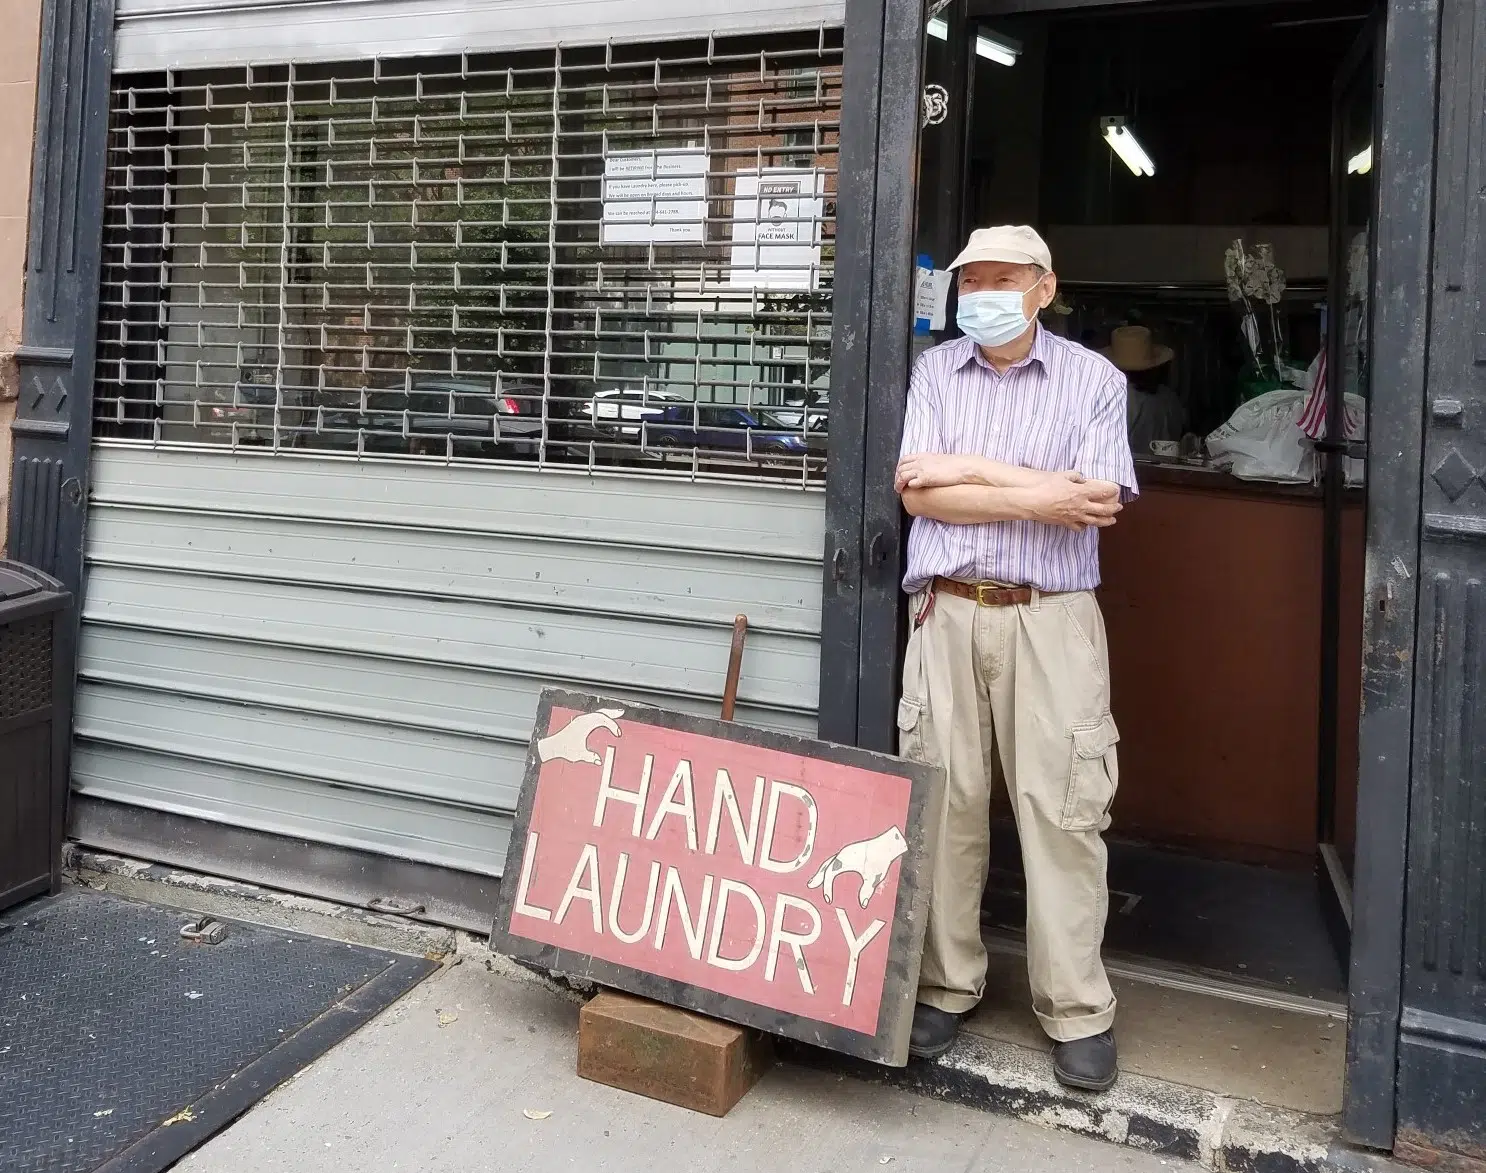 Dear Customers,
I will be RETIRING from the Business.
If you have Laundry here, please pick-up.
We will be open on limited days and hours.
We can be reached at
Thank you
NO ENTRY
WITHOUT
FACE MASK
HAND
LAUNDRY